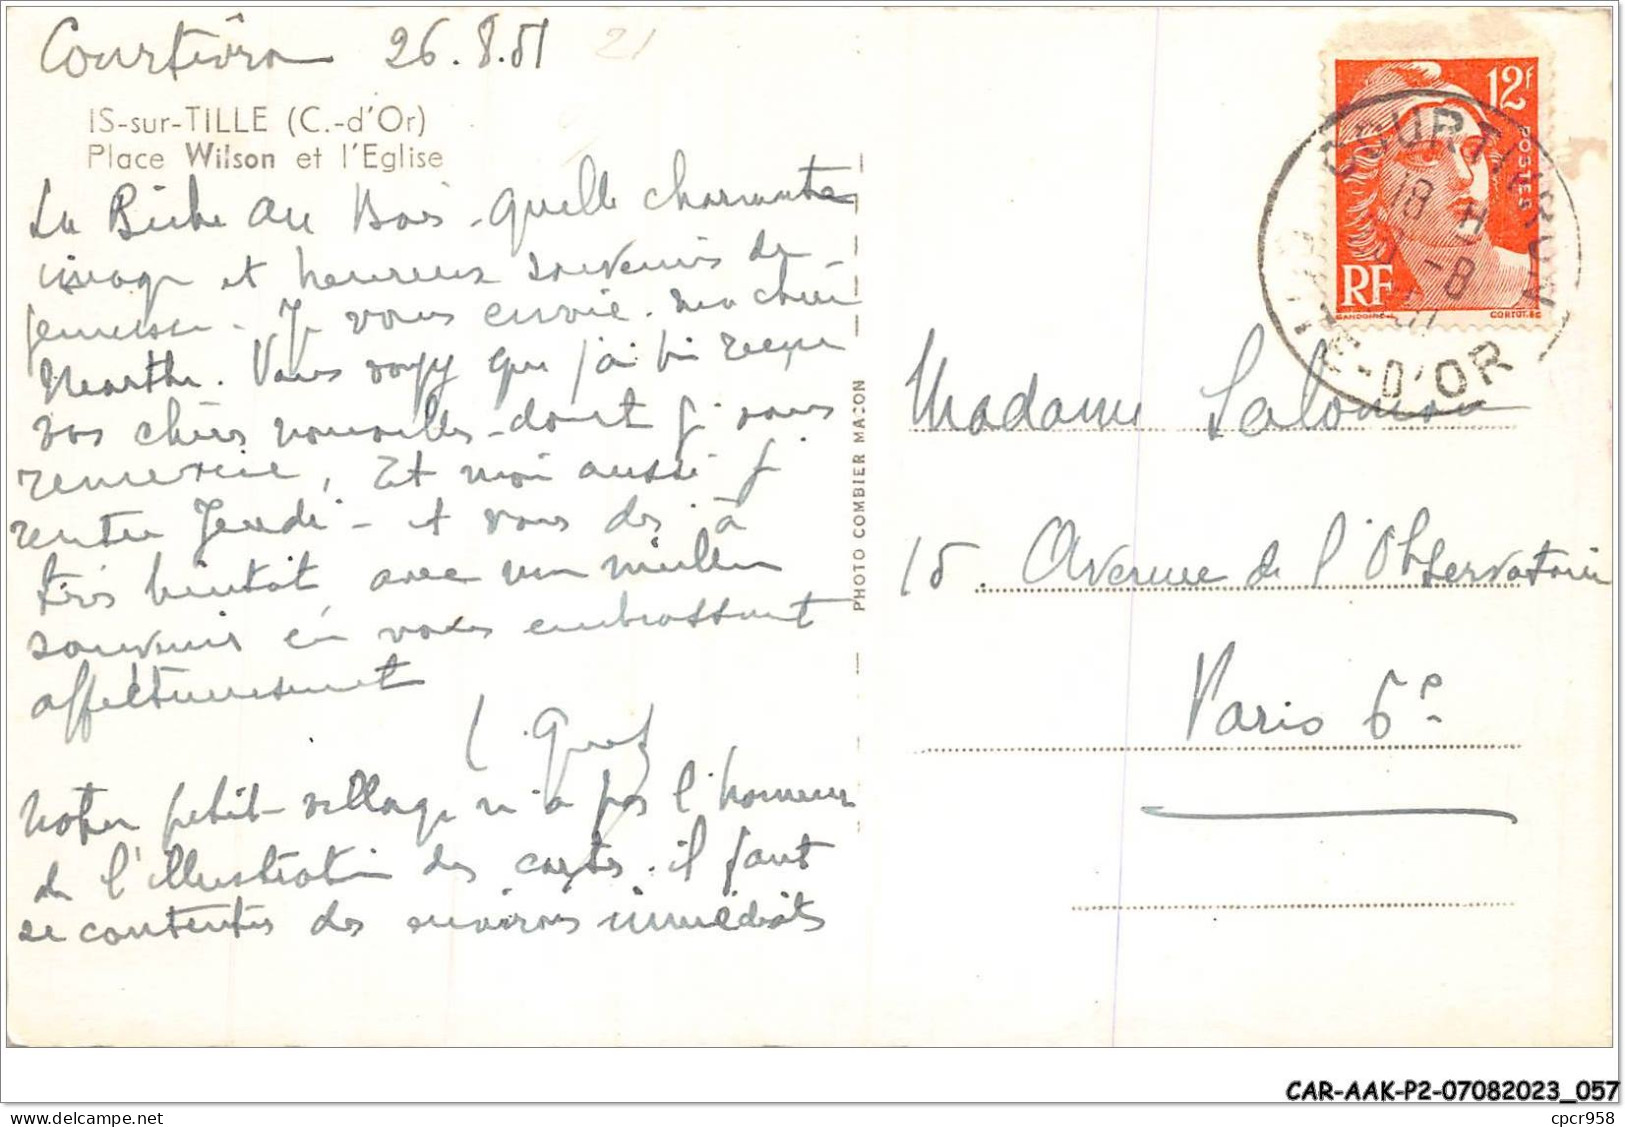 Courtivron 26.8.51
21
IS-sur-TILLE (C.-d'Or)
Place Wilson et l'Eglise
La Biche au Bois - quelle charmante
image et heureux souvenirs de
jeunesse - Je vous envoie. ma chère
Marthe. Vous voyez que j'ai bien reçu
vos chères nouvelles - dont je vous
remercie, Et moi aussi je
rentre Jeudi - et vous dis à
très bientôt avec mon meilleur
souvenir en vous embrassant
affectueusement
Notre petit village n'a pas l'honneur
de l'illustration des cartes. il faut
se contenter des environs immédiats
PHOTO COMBIER MACON
12F
POSTES
RF
GANDON
CORTOT.SC
COURTIVRON
18 H
-8
D'OR
Madame Salomon
15. Avenue de l'Observatoire
Paris 6e
CAR-AAK-P2-07082023_057
cpcr958